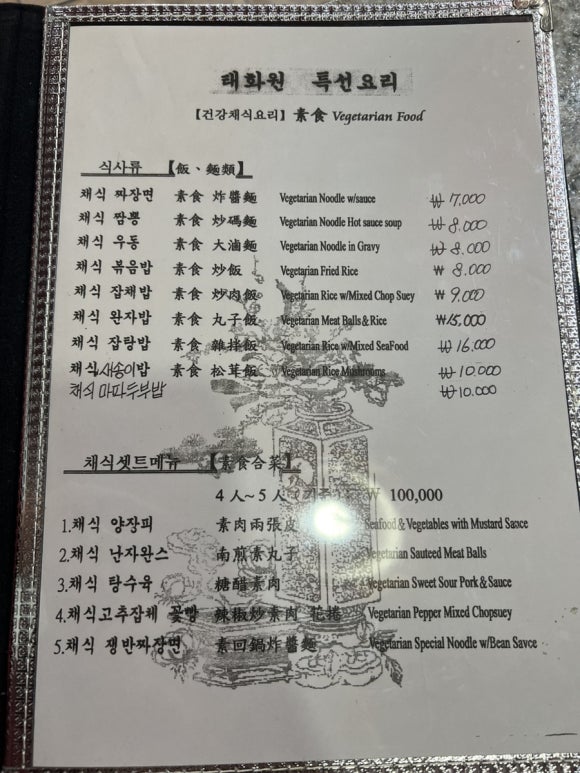 태화원 특선요리
【건강채식요리】 素食 Vegetarian Food
식사류 【飯、麵類】
채식 짜장면 素食 炸醬麵 Vegetarian Noodle w/sauce ₩ 7,000
채식 짬뽕 素食 炒碼麵 Vegetarian Noodle Hot sauce soup ₩ 8,000
채식 우동 素食 大滷麵 Vegetarian Noodle in Gravy ₩ 8,000
채식 볶음밥 素食 炒飯 Vegetarian Fried Rice ₩ 8.000
채식 잡채밥 素食 炒肉飯 Vegetarian Rice w/Mixed Chop Suey ₩ 9,000
채식 완자밥 素食 丸子飯 Vegetarian Meat Balls & Rice ₩15,000
채식 잡탕밥 素食 雜拌飯 Vegetarian Rice w/Mixed SeaFood ₩ 16.000
채식 새송이밥 素食 松茸飯 Vegetarian Rice Mushrooms ₩ 10.000
채식 마파두부밥 ₩ 10.000
채식셋트메뉴 【素食合菜】
4人~5人 ₩ 100,000
1.채식 양장피 素肉兩張皮 Seafood & Vegetables with Mustard Sauce
2.채식 난자완스 南煎素丸子 Vegetarian Sauteed Meat Balls
3.채식 탕수육 糖醋素肉 Vegetarian Sweet Sour Pork & Sauce
4.채식고추잡체 꽃빵 辣椒炒素肉 花捲 Vegetarian Pepper Mixed Chopsuey
5.채식 쟁반짜장면 素回鍋炸醬麵 Vegetarian Special Noodle w/Bean Savce